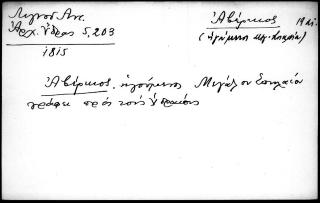 Λιγνού Αντ.
Ἀρχ. Ὕδρας 5, 203
1815
Ἀβέρκιος 19 αἰ.
(ἡγούμενος
Ἀβέρκιος, ἡγούμενος Μεγάλου Σπηλαίου
γράφει πρὸς τοὺς Ὑδραίους